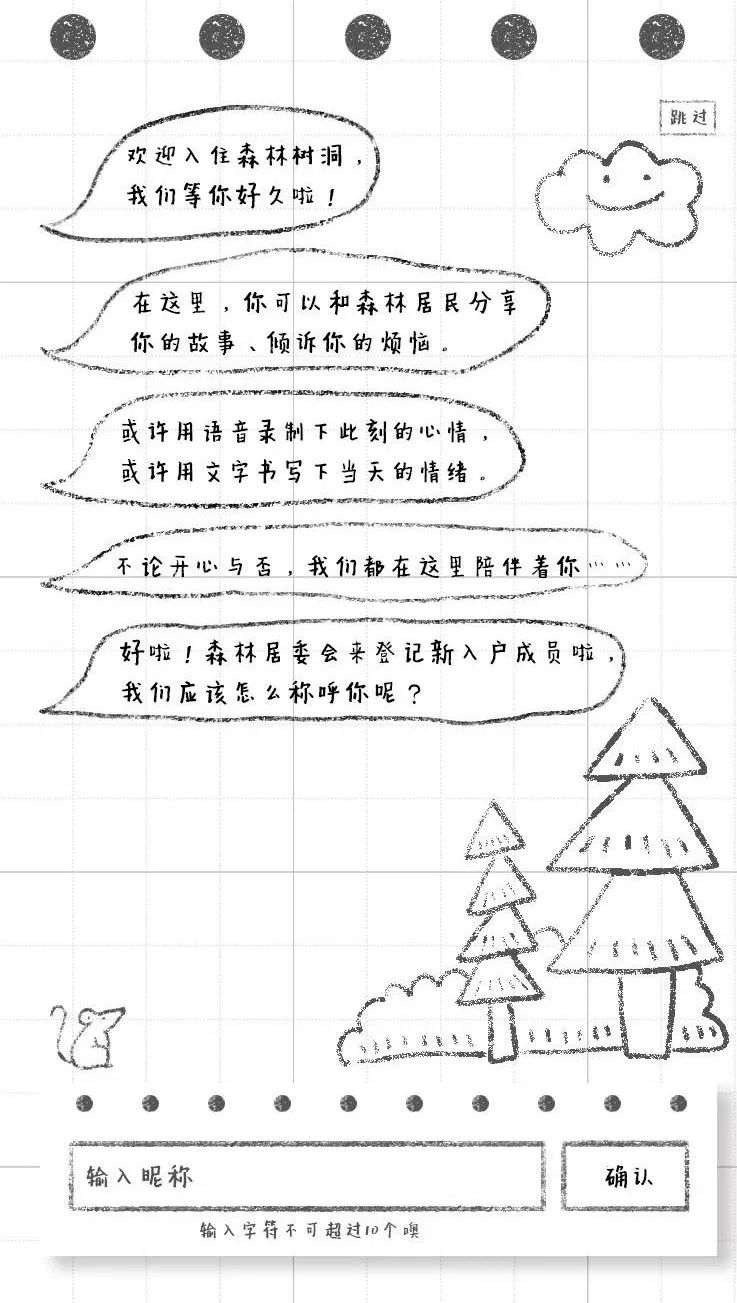 跳过
欢迎入住森林树洞，
我们等你好久啦！
在这里，你可以和森林居民分享
你的故事、倾诉你的烦恼。
或许用语音录制下此刻的心情，
或许用文字书写下当天的情绪。
不论开心与否，我们都在这里陪伴着你……
好啦！森林居委会来登记新入户成员啦，
我们应该怎么称呼你呢？
输入昵称
确认
输入字符不可超过10个噢